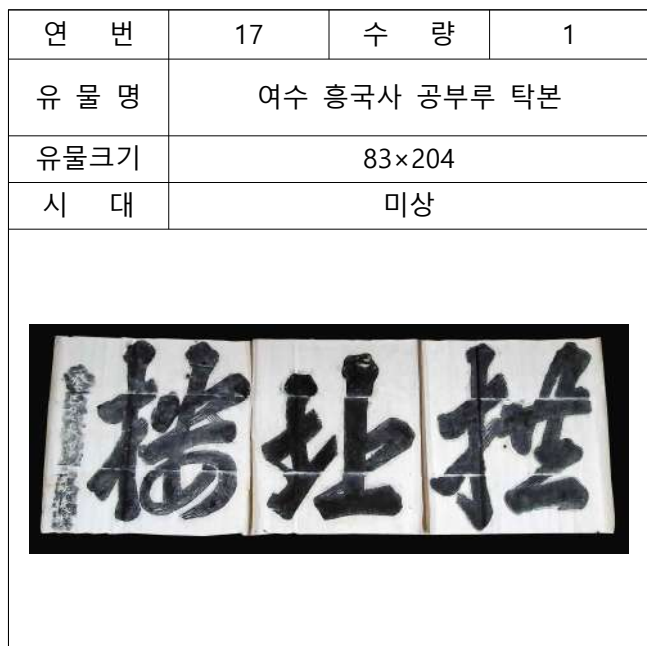 연 번 17 수 량 1
유 물 명 여수 흥국사 공부루 탁본
유물크기 83×204
시 대 미상
拱北樓